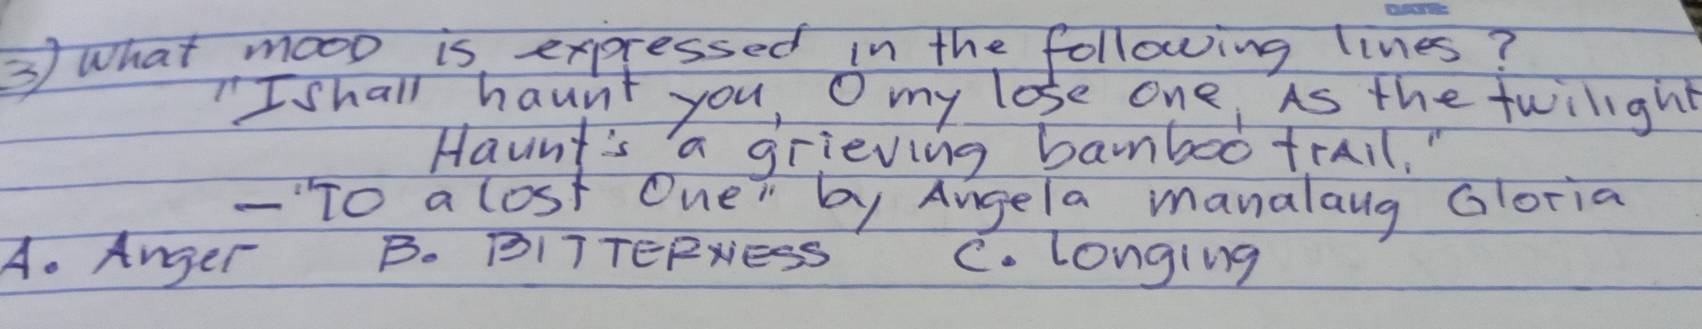 DATE:
3) What mood is expressed in the following lines?
"I shall haunt you, O my lose one, As the twilight
Haunt's a grieving bamboo trail."
- "To a lost One" by Angela manalaug Gloria
A. Anger B. BITTERNESS C. longing